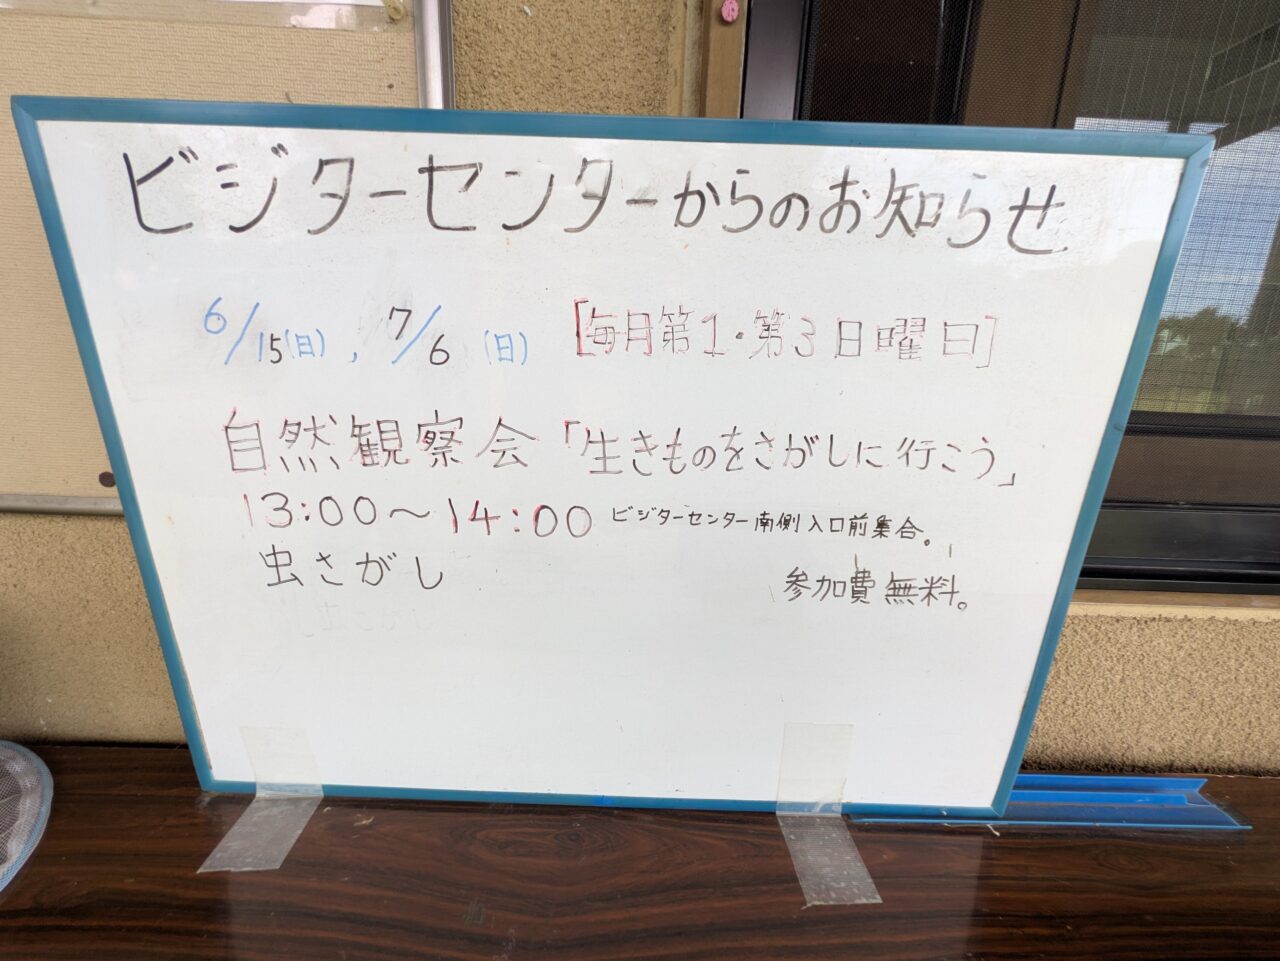 ビジターセンターからのお知らせ
6/15(日), 7/6(日) [毎月第1・第3日曜日]
自然観察会「生きものをさがしに行こう」
13:00〜14:00 ビジターセンター南側入口前集合。
虫さがし 参加費無料。